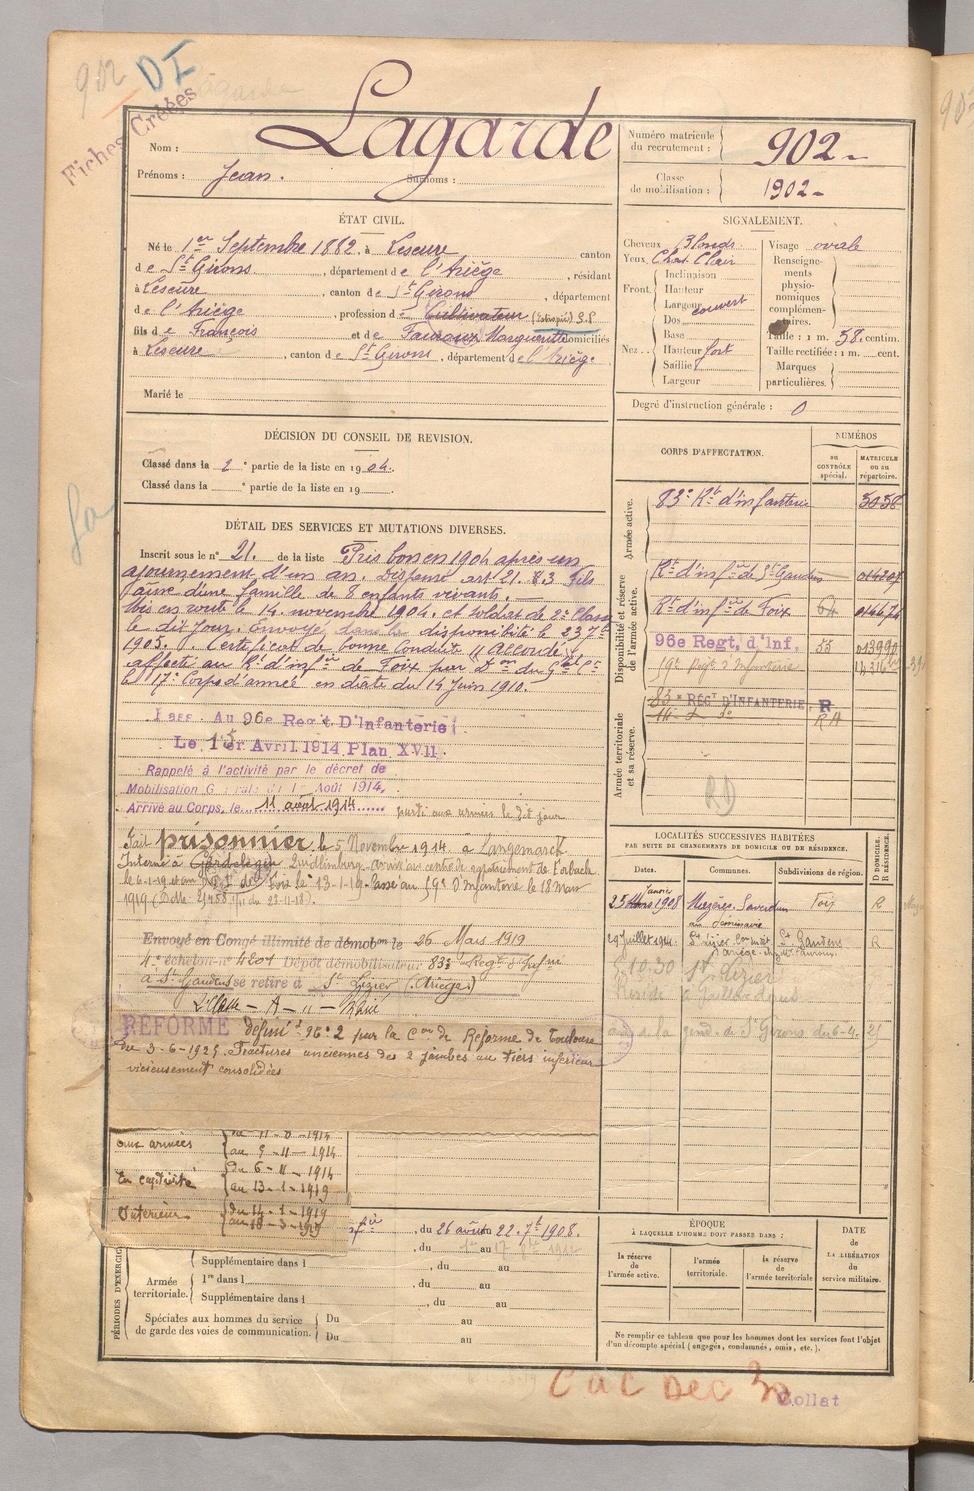 902 DI
Fiches Créées
Nom : Lagarde
Prénoms : Jean. Surnoms :
Numéro matricule du recrutement : 902
Classe de mobilisation : 1902
ÉTAT CIVIL.
Né le 1er Septembre 1882, à Lescure canton
de St Girons, département de l'Ariège, résidant
à Lescure, canton de St Girons, département
de l'Ariège, profession de Cultivateur
fils de François et de Marguerite domiciliés
à Lescure, canton de St Girons, département de l'Ariège.
Marié le
SIGNALEMENT.
Cheveux blonds
Yeux Chat. Clair
Front Inclinaison
Hauteur
Largeur couvert
Nez Dos
Base
Hauteur fort
Saillie
Largeur
Visage ovale
Renseignements physionomiques complémentaires.
Taille : 1 m. 58. centim.
Taille rectifiée : 1 m. cent.
Marques particulières.
Degré d'instruction générale : 0
DÉCISION DU CONSEIL DE REVISION.
Classé dans la 2e partie de la liste en 1904.
Classé dans la e partie de la liste en 19
DÉTAIL DES SERVICES ET MUTATIONS DIVERSES.
Inscrit sous le n° 21. de la liste Pris bon en 1904 après un
ajournement d'un an. Dispensé art. 21. § 3 fils
aîné d'une famille de 8 enfants vivants.
Mis en route le 14 novembre 1904. et soldat de 2e Classe
le dit jour. Envoyé dans la disponibilité le 23 7bre
1905. Certificat de bonne Conduite "Accordé".
affecté au Rt d'infie de Foix par Don du Gal Ct
le 17e Corps d'armée en date du 14 Juin 1910.
Au 96e Regt D'Infanterie
Le 1er Avril 1914 Plan XVII.
Rappelé à l'activité par le décret de
Mobilisation Générale du 1er Août 1914,
Arrivé au Corps, le 11 août 1914 parti aux armées le dit jour
Fait prisonnier le 5 Novembre 1914 à Langemarck
Interné à Gardelegen Quedlinburg
le 6-1-19 Foix le 13-1-19 Passé au 59e d'Infanterie le 18 Mars
1919
Envoyé en Congé illimité de démobon le 26 Mars 1919
4e échelon n° 4201 Dépôt démobilisateur 83e Regt d'Infie
à St Gaudens se retire à St Lizier (Ariège)
RÉFORMÉ définif n° 2 par la Con de Réforme de Toulouse
du 3-6-1925. Fractures anciennes des 2 jambes au tiers inférieur
vicieusement consolidées
aux armées du 11-8-1914
au 5-11-1914
En captivité du 6-11-1914
au 13-1-1919
Intérieur du 14-1-1919
CORPS D'AFFECTATION.
NUMÉROS
au CONTRÔLE spécial.
MATRICULE ou au répertoire.
Armée active.
83e Rt d'infanterie 5056
Disponibilité et réserve de l'armée active.
Rt d'infie de St Gaudens 014207
Rt d'infie de Foix 64
96e Regt. d'Inf. 55 013990
59e Regt d'Infanterie
Armée territoriale et sa réserve.
83e REGT D'INFANTERIE R
RD
LOCALITÉS SUCCESSIVES HABITÉES
PAR SUITE DE CHANGEMENTS DE DOMICILE OU DE RÉSIDENCE.
Dates. Communes. Subdivisions de région. D DOMICILE. R RÉSIDENCE.
25 Janvier 1908 Mazères, Saverdun Foix R
29 Juillet 1914 St Lizier St Gaudens R
St Lizier
PÉRIODES D'EXERCICES
, du 26 août au 22. 7bre 1908.
, du au
Armée territoriale.
Supplémentaire dans l , du au
1re dans l , du au
Supplémentaire dans l , du au
Spéciales aux hommes du service de garde des voies de communication.
Du au
Du au
ÉPOQUE
À LAQUELLE L'HOMME DOIT PASSER DANS :
la réserve de l'armée active.
l'armée territoriale.
la réserve de l'armée territoriale
DATE de LA LIBÉRATION du service militaire.
Ne remplir ce tableau que pour les hommes dont les services font l'objet
d'un décompte spécial (engagés, condamnés, omis, etc.).
Collat